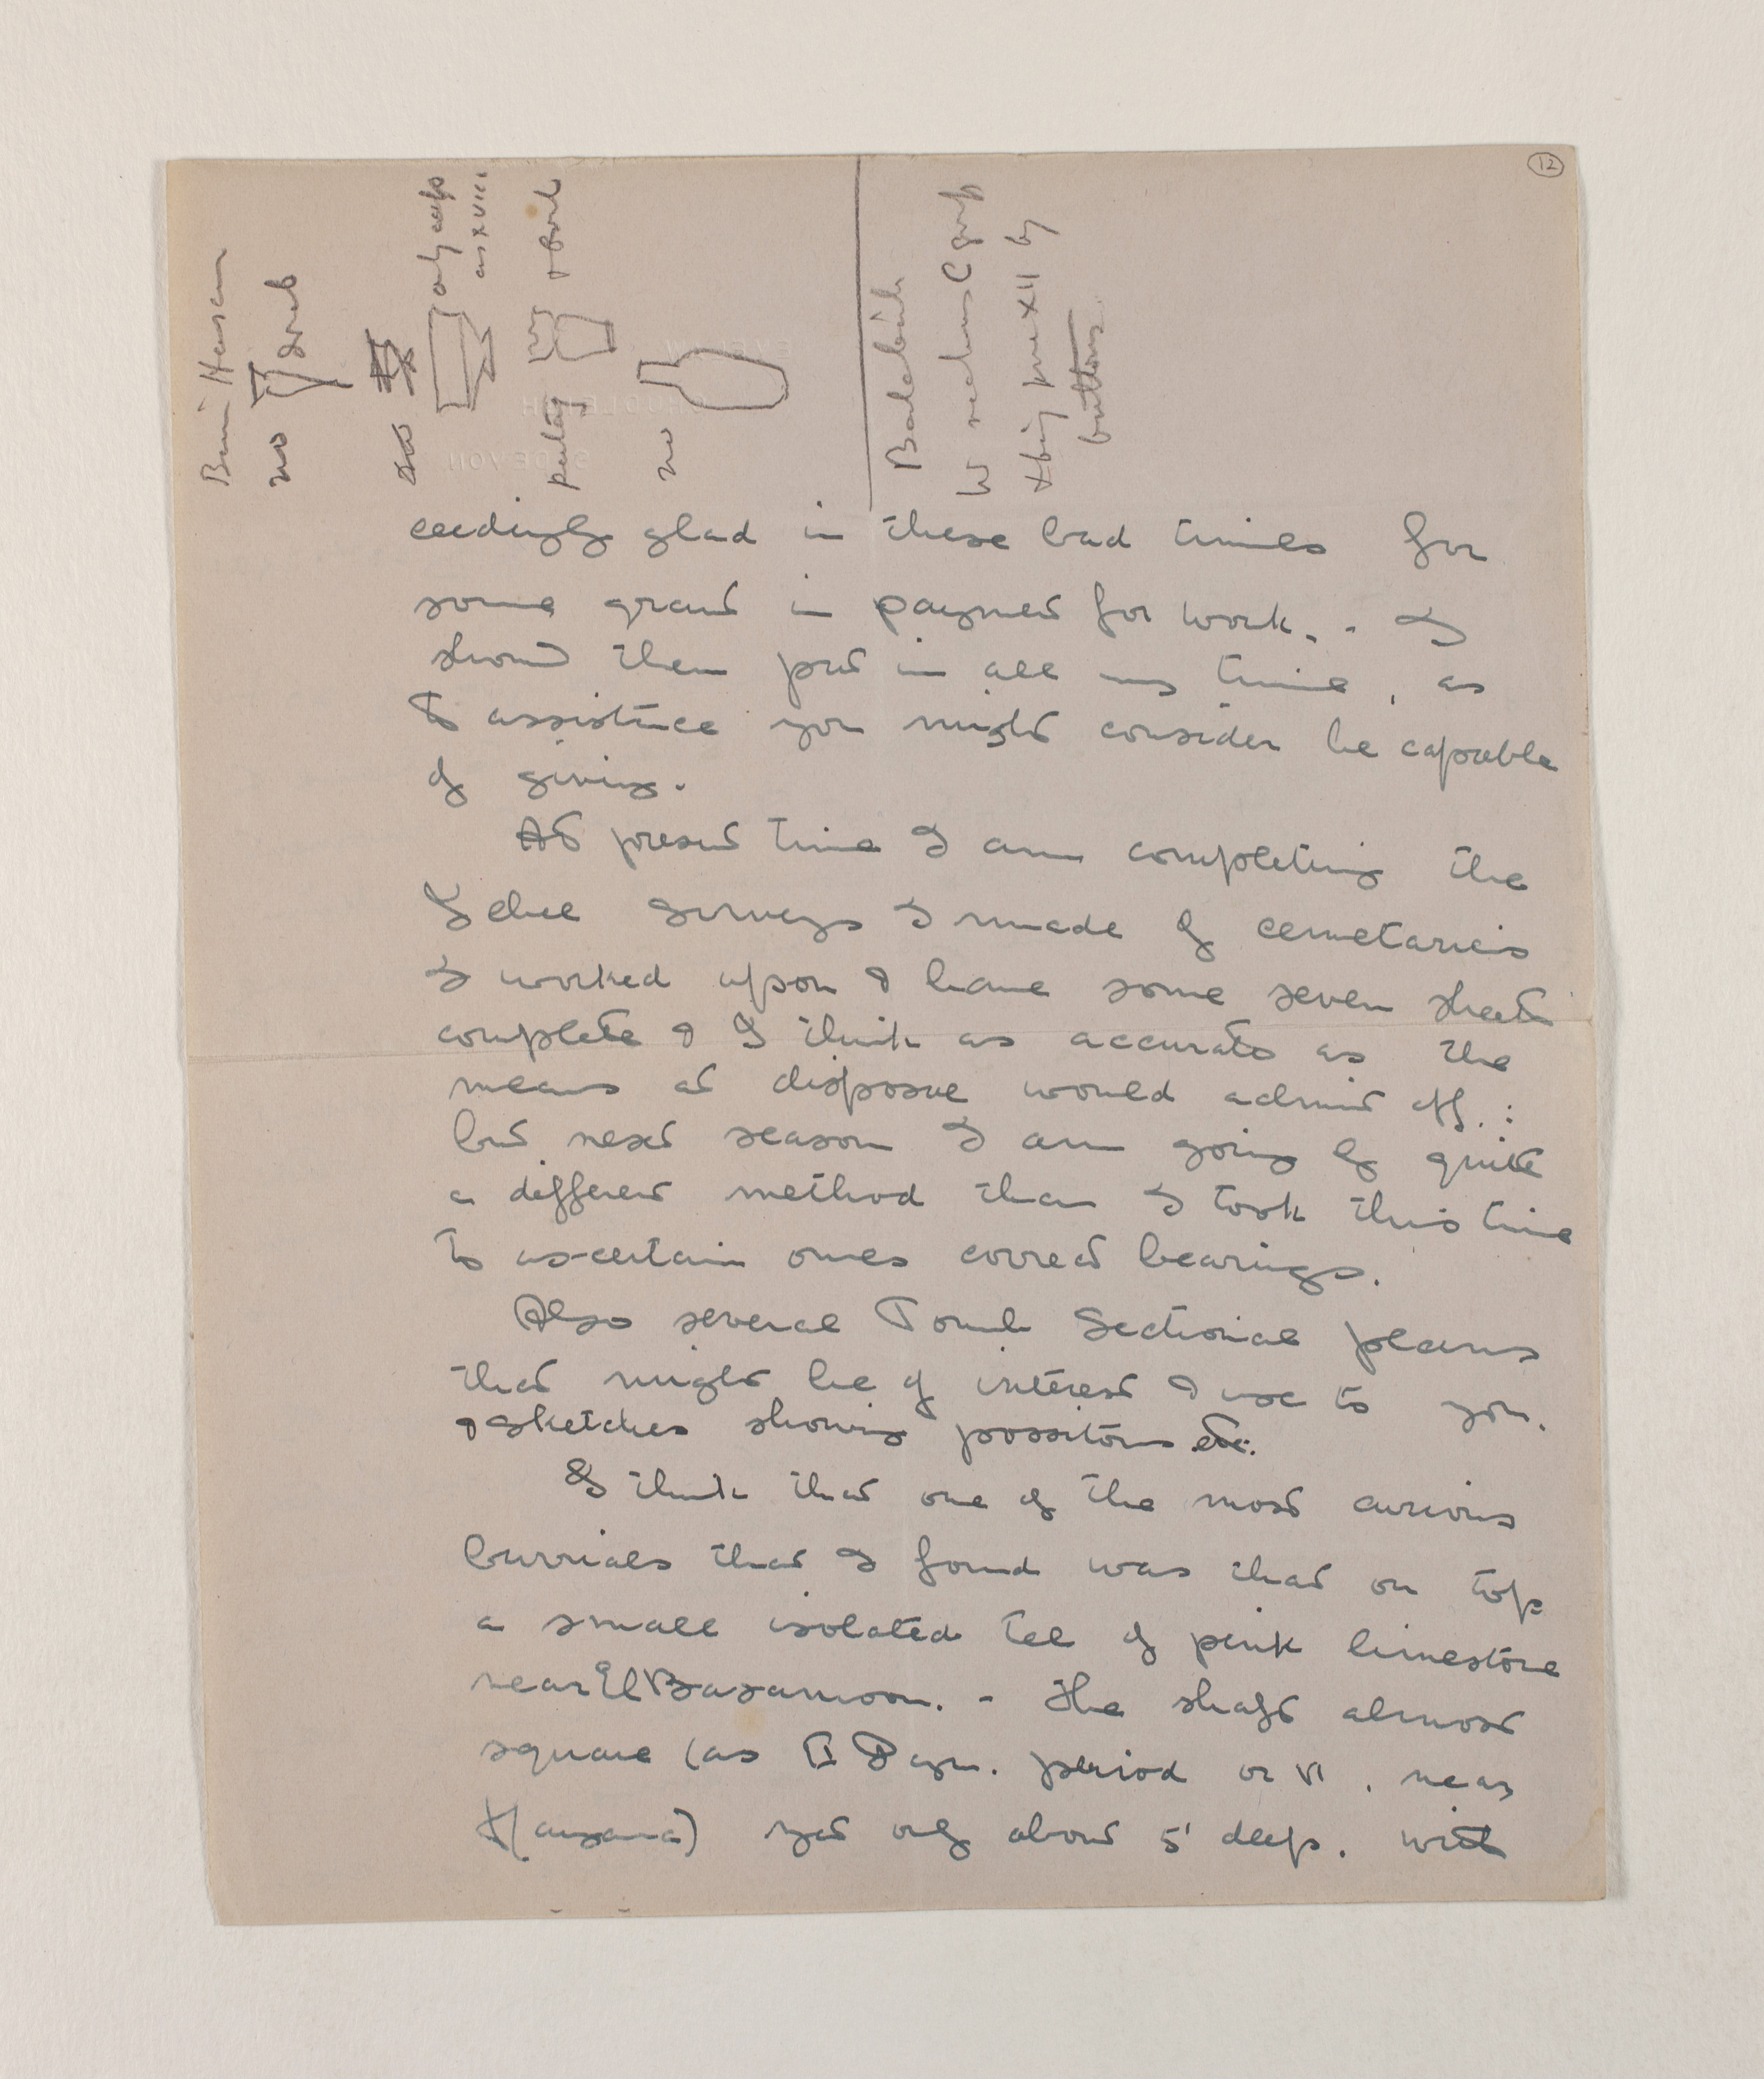 12
Beni Hasan
no
only caps
as XVIII
no
Balabish
buttons
ceedingly glad in these bad times for
some grant in payment for work. - I
should then put in all my time, as
to assistance you might consider be capable
of giving.
At present time I am completing the
I made of cemetaries
I worked upon & have some seven sheets
complete & I think as accurate as the
means at disposal would admit off. :
but next season I am going by quite
a different method than I took this time
to ascertain ones correct bearings.
Also several Tomb Sectional plans
that might be of interest & use to you.
& sketches showing possitons etc.
I think that one of the most curious
burrials that I found was that on top
a small isolated tel of pink limestone
near El - The shaft almost
square (as period or VI. near
) yet only about 5' deep. with